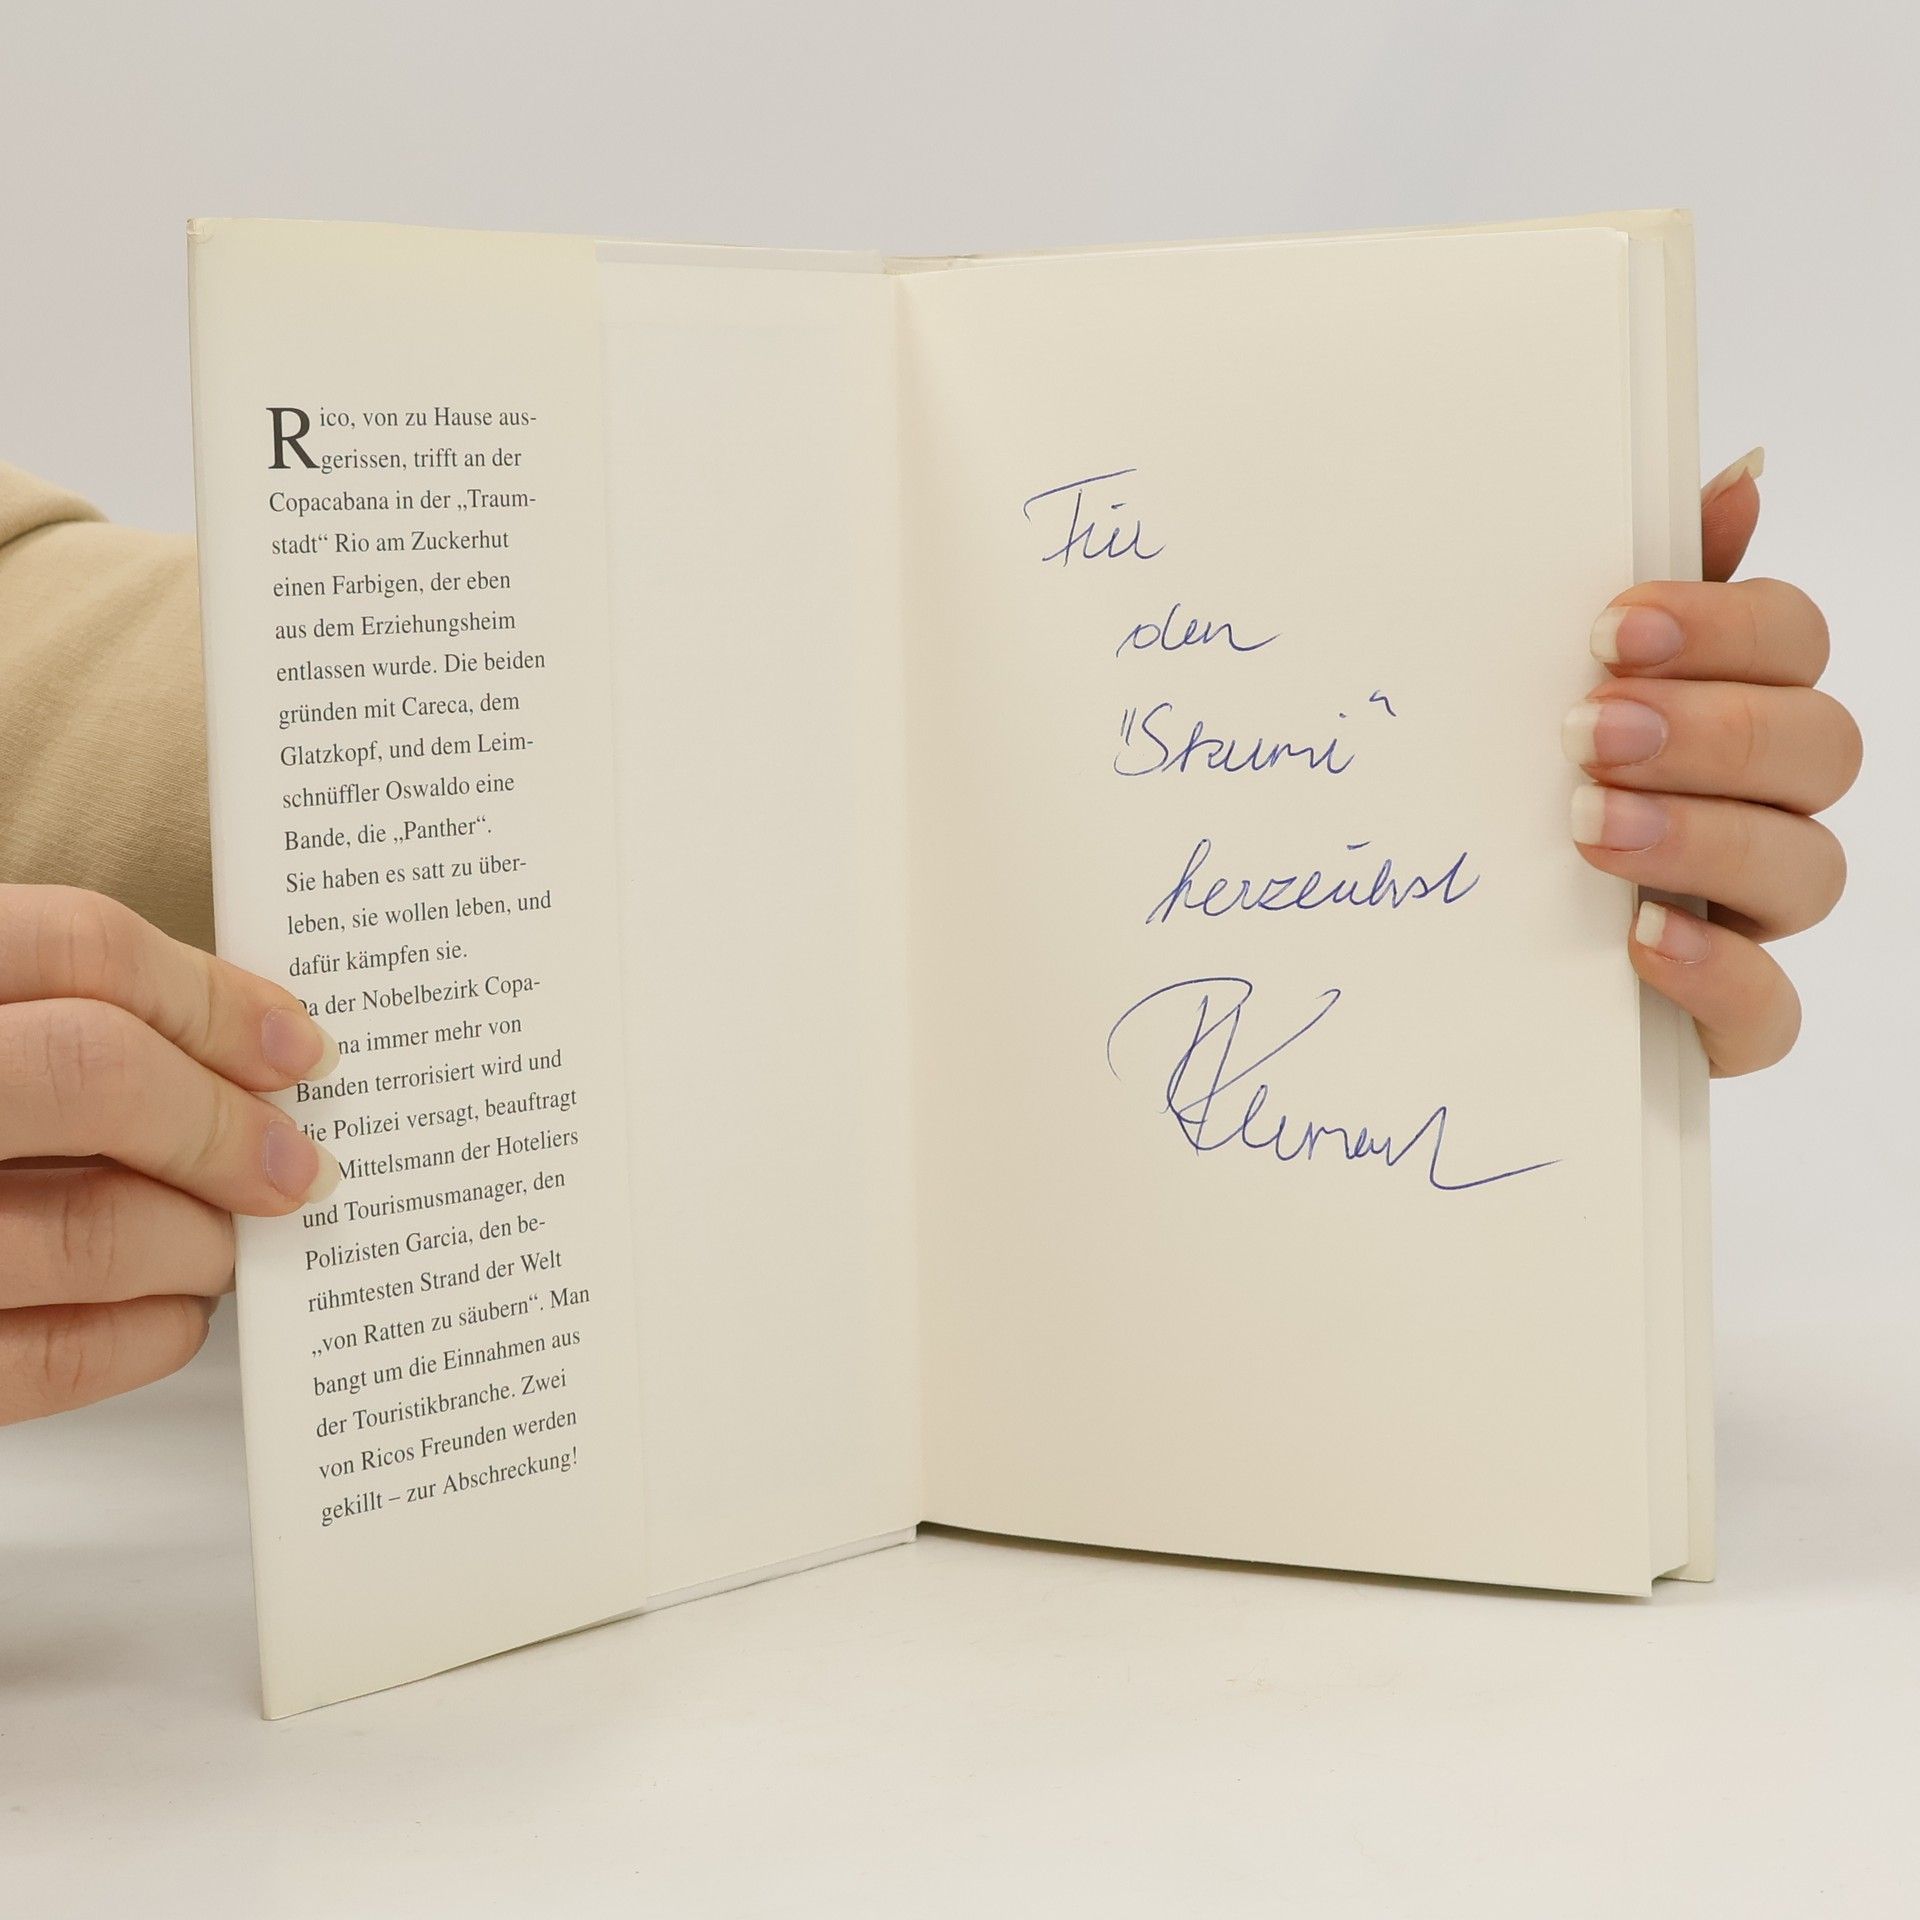 Rico, von zu Hause aus-
gerissen, trifft an der
Copacabana in der „Traum-
stadt“ Rio am Zuckerhut
einen Farbigen, der eben
aus dem Erziehungsheim
entlassen wurde. Die beiden
gründen mit Careca, dem
Glatzkopf, und dem Leim-
schnüffler Oswaldo eine
Bande, die „Panther“.
Sie haben es satt zu über-
leben, sie wollen leben, und
dafür kämpfen sie.
Da der Nobelbezirk Copa-
na immer mehr von
Banden terrorisiert wird und
die Polizei versagt, beauftragt
Mittelsmann der Hoteliers
und Tourismusmanager, den
Polizisten Garcia, den be-
rühmtesten Strand der Welt
„von Ratten zu säubern“. Man
bangt um die Einnahmen aus
der Touristikbranche. Zwei
von Ricos Freunden werden
gekillt – zur Abschreckung!
Für
den
herzlichst